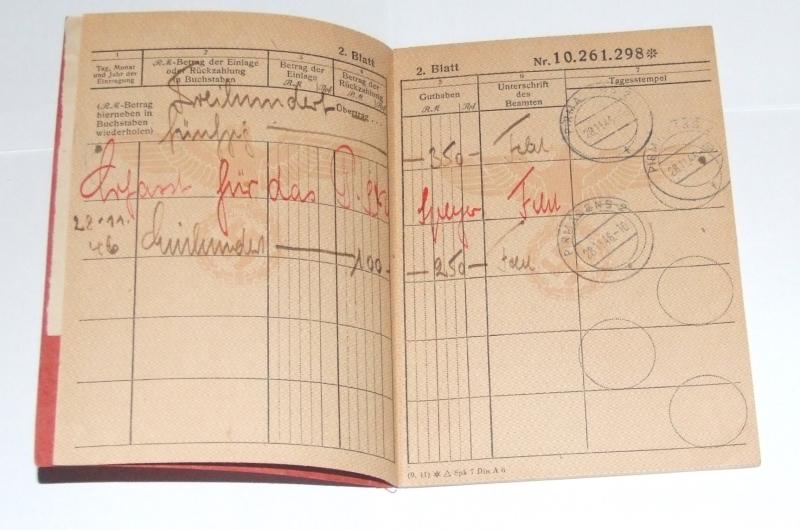 2. Blatt
1
Tag, Monat und Jahr der Eintragung
2
RM-Betrag der Einlage oder Rückzahlung in Buchstaben
3
Betrag der Einlage
RM Rpf
4
Betrag der Rückzahlung
RM Rpf
(RM-Betrag hierneben in Buchstaben wiederholen)
Dreihundert
fünfzig
Übertrag...
Erfasst für das
28.11.
46
Einhundert
100
2. Blatt
Nr. 10.261.298*
5
Guthaben
RM Rpf
6
Unterschrift des Beamten
7
Tagesstempel
—350—
PIRMA
28.11.46
Speyer
PIRM
28.11.46
—250—
PIRMASENS
28.11.46
(9. 41) * △ Spk 7 Din A 6